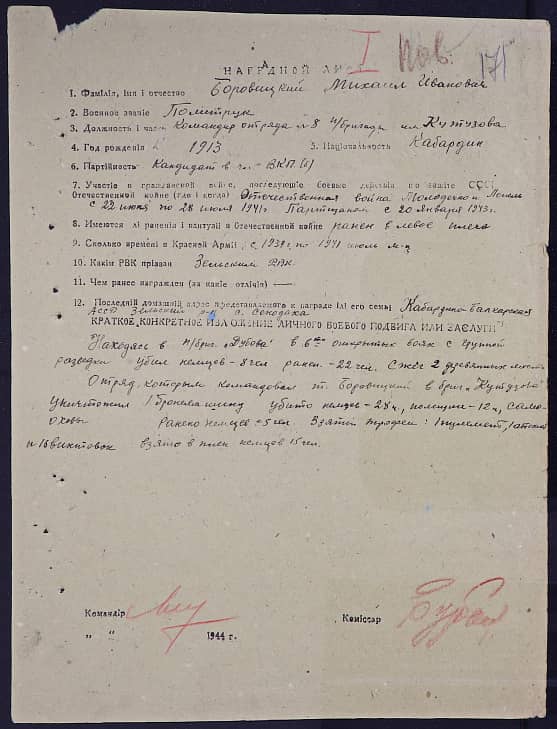 I Пов. 171
НАГРАДНОЙ ЛИСТ
1. Фамілія, імя і отчество Боровицкий Михаил Иванович
2. Военное званіе Политрук
3. Должность і часть Командир отряда № 8 п/бригады им. Кутузова
4. Год рождения 1913 5. Національность Кабардин
6. Партійность Кандидат в чл. ВКП(б)
7. Участіе в гражданской войне, последующіе боевые действія по защіте СССР
Отечественной войне (где і когда) Отечественная война Молодечно Лепель
с 22 июня по 28 июля 1941г Партизаном с 20 января 1943г.
8. Имеются лі ранения і контузіі в Отечественной войне ранен в левое плечо
9. Сколько времені в Красной Арміі с 1939г. по 1941 июль м-ц
10. Какім РВК прізван Зельским РВК
11. Чем ранее награжден (за какіе отлічія) —
12. Последній домашній адрес представляемого к награде ілі его семьі Кабардино Балкарская
АССР Зельский р-н с.
КРАТКОЕ КОНКРЕТНОЕ ИЗЛОЖЕНИЕ ЛИЧНОГО БОЕВОГО ПОДВИГА ИЛИ ЗАСЛУГИ
Находясь в п/бриг. "Дубова" в 6ти открытых боях с группой
разведки убил немцев-8чел ранен.-22чел. Сжег 2 деревянных моста
Отряд которым командовал т. Боровицкий в бриг. "Кутузова"
уничтожил 1 бронемашину убито немцев-28ч, полиции-12ч, само-
охвы Ранено немцев 35чел. Взяты трофеи: 1 пулемет,
и 16 винтовок взято в плен немцев 15чел.
Командір Коміссар
" " 1944 г.